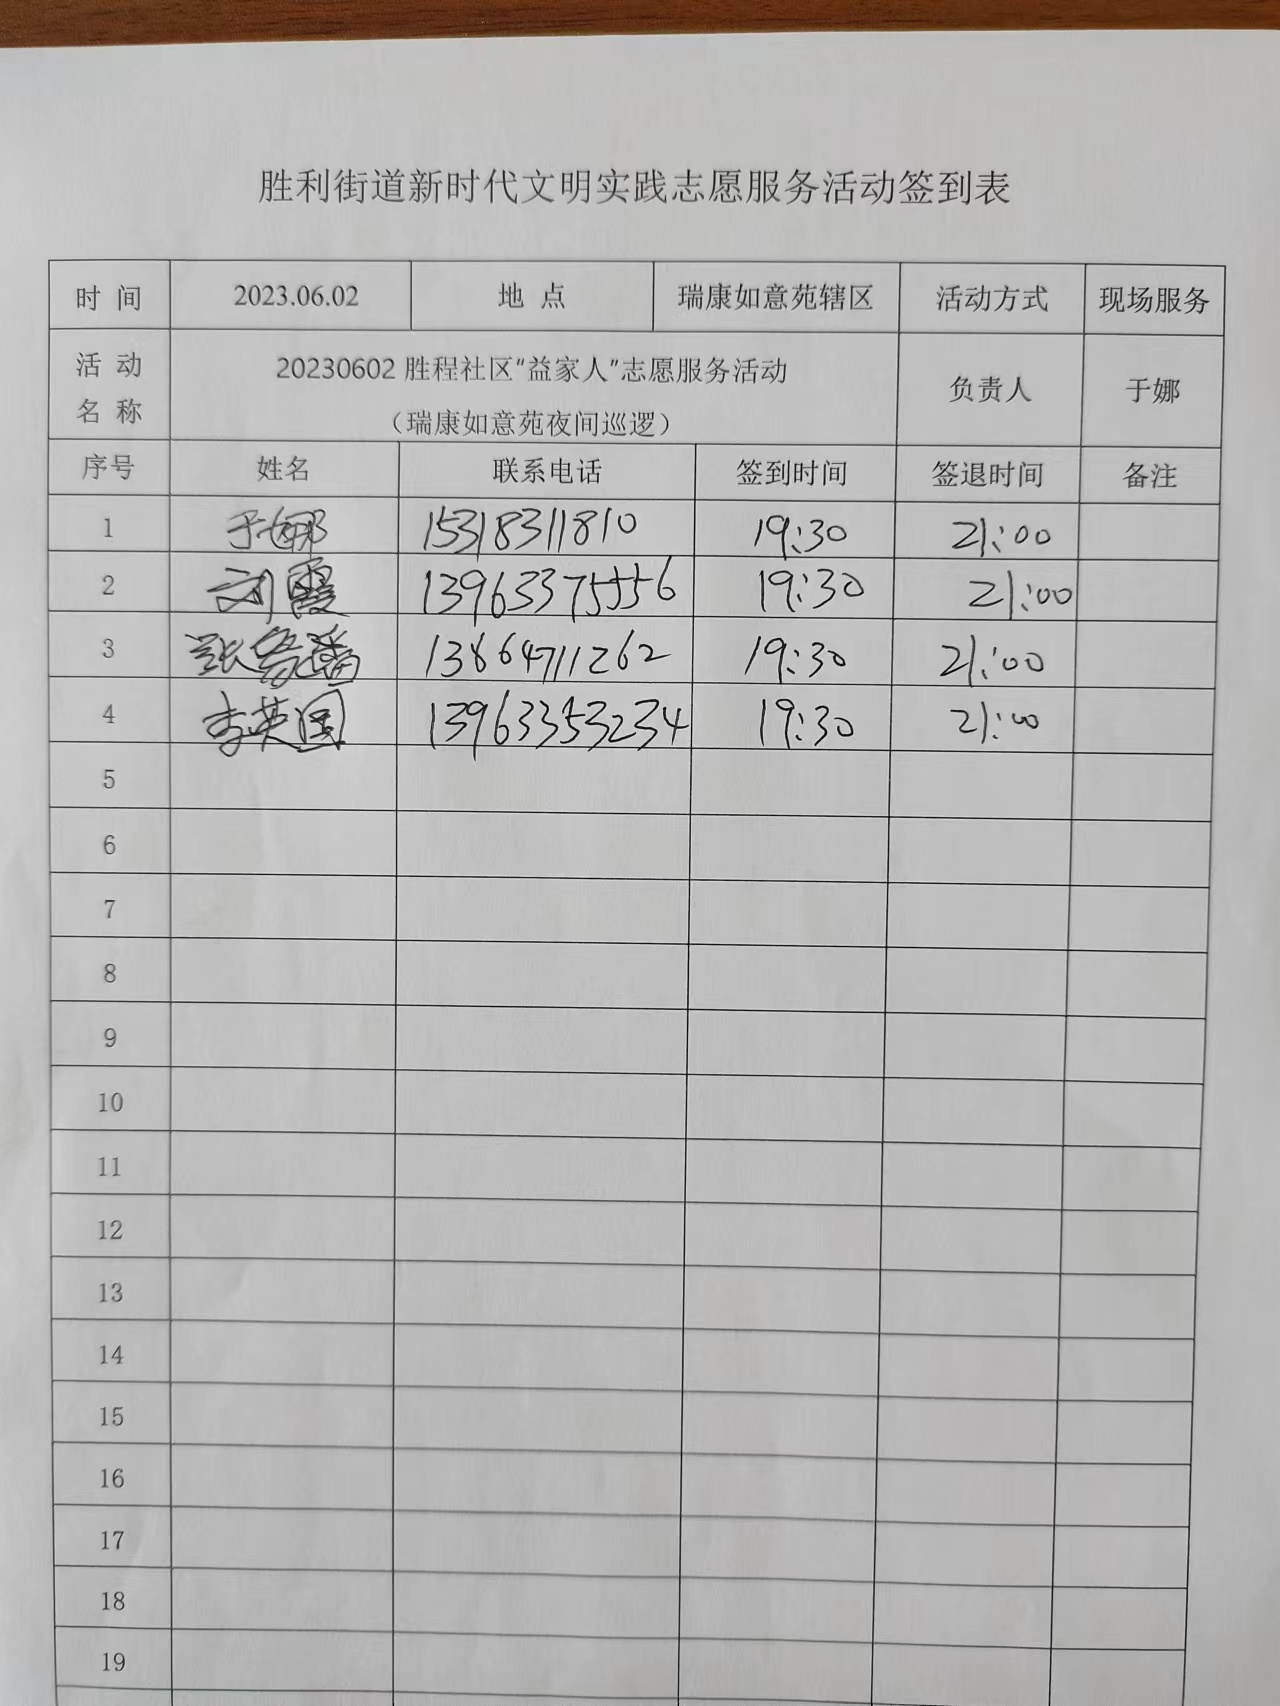 胜利街道新时代文明实践志愿服务活动签到表
时 间 2023.06.02 地 点 瑞康如意苑辖区 活动方式 现场服务
活 动 名 称 20230602 胜程社区"益家人"志愿服务活动 负责人 于娜
（瑞康如意苑夜间巡逻）
序号 姓名 联系电话 签到时间 签退时间 备注
1 于娜 15318311810 19:30 21:00
2 刘霞 13963375556 19:30 21:00
3 张 13864711262 19:30 21:00
4 李英国 13963353234 19:30 21:00
5
6
7
8
9
10
11
12
13
14
15
16
17
18
19